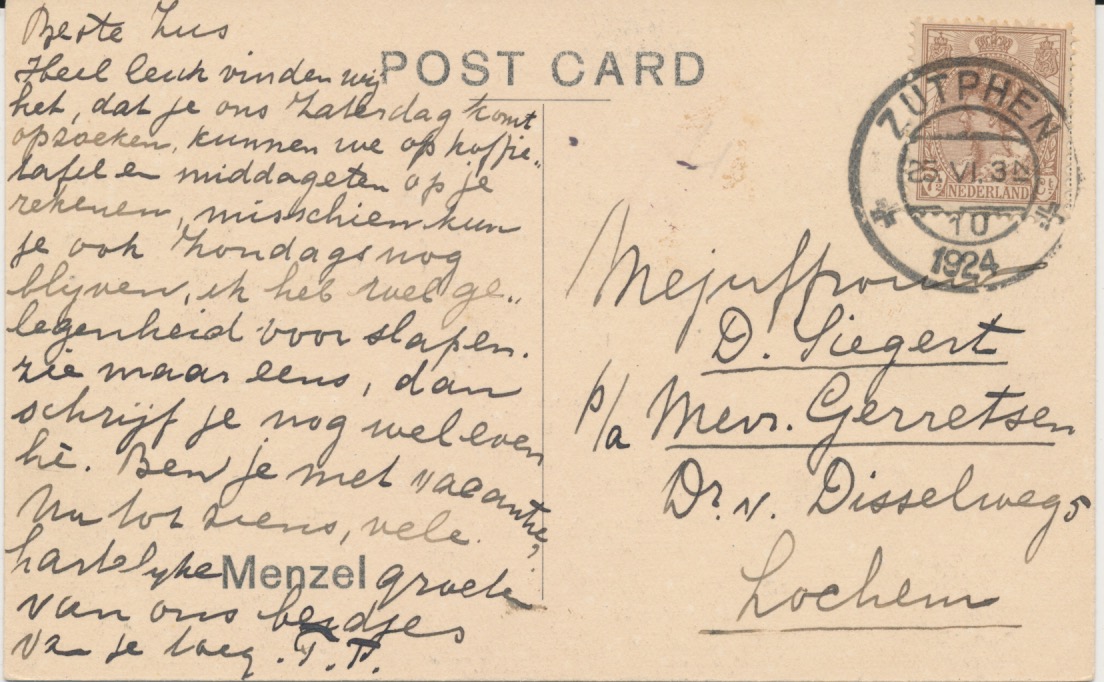 Beste Zus
Heel leuk vinden wij
het, dat je ons Zaterdag komt
opzoeken, kunnen we op koffie„
tafel en middageten op je
rekenen, misschien kun
je ook Zondags nog
blijven, ik heb wel ge„
legenheid voor slapen.
zie maar eens, dan
schrijf je nog wel even
hè. Ben je met vacantie,
Nu tot ziens, vele
hartelijke groeten
van ons beidjes
van je
POST CARD
Menzel
ZUTPHEN
25. VI. 3
10
1924
7½ NEDERLAND Ct
Mejuffrouw
D. Siegert
p/a Mevr. Gerretsen
Dr. v. Disselweg 5
Lochem